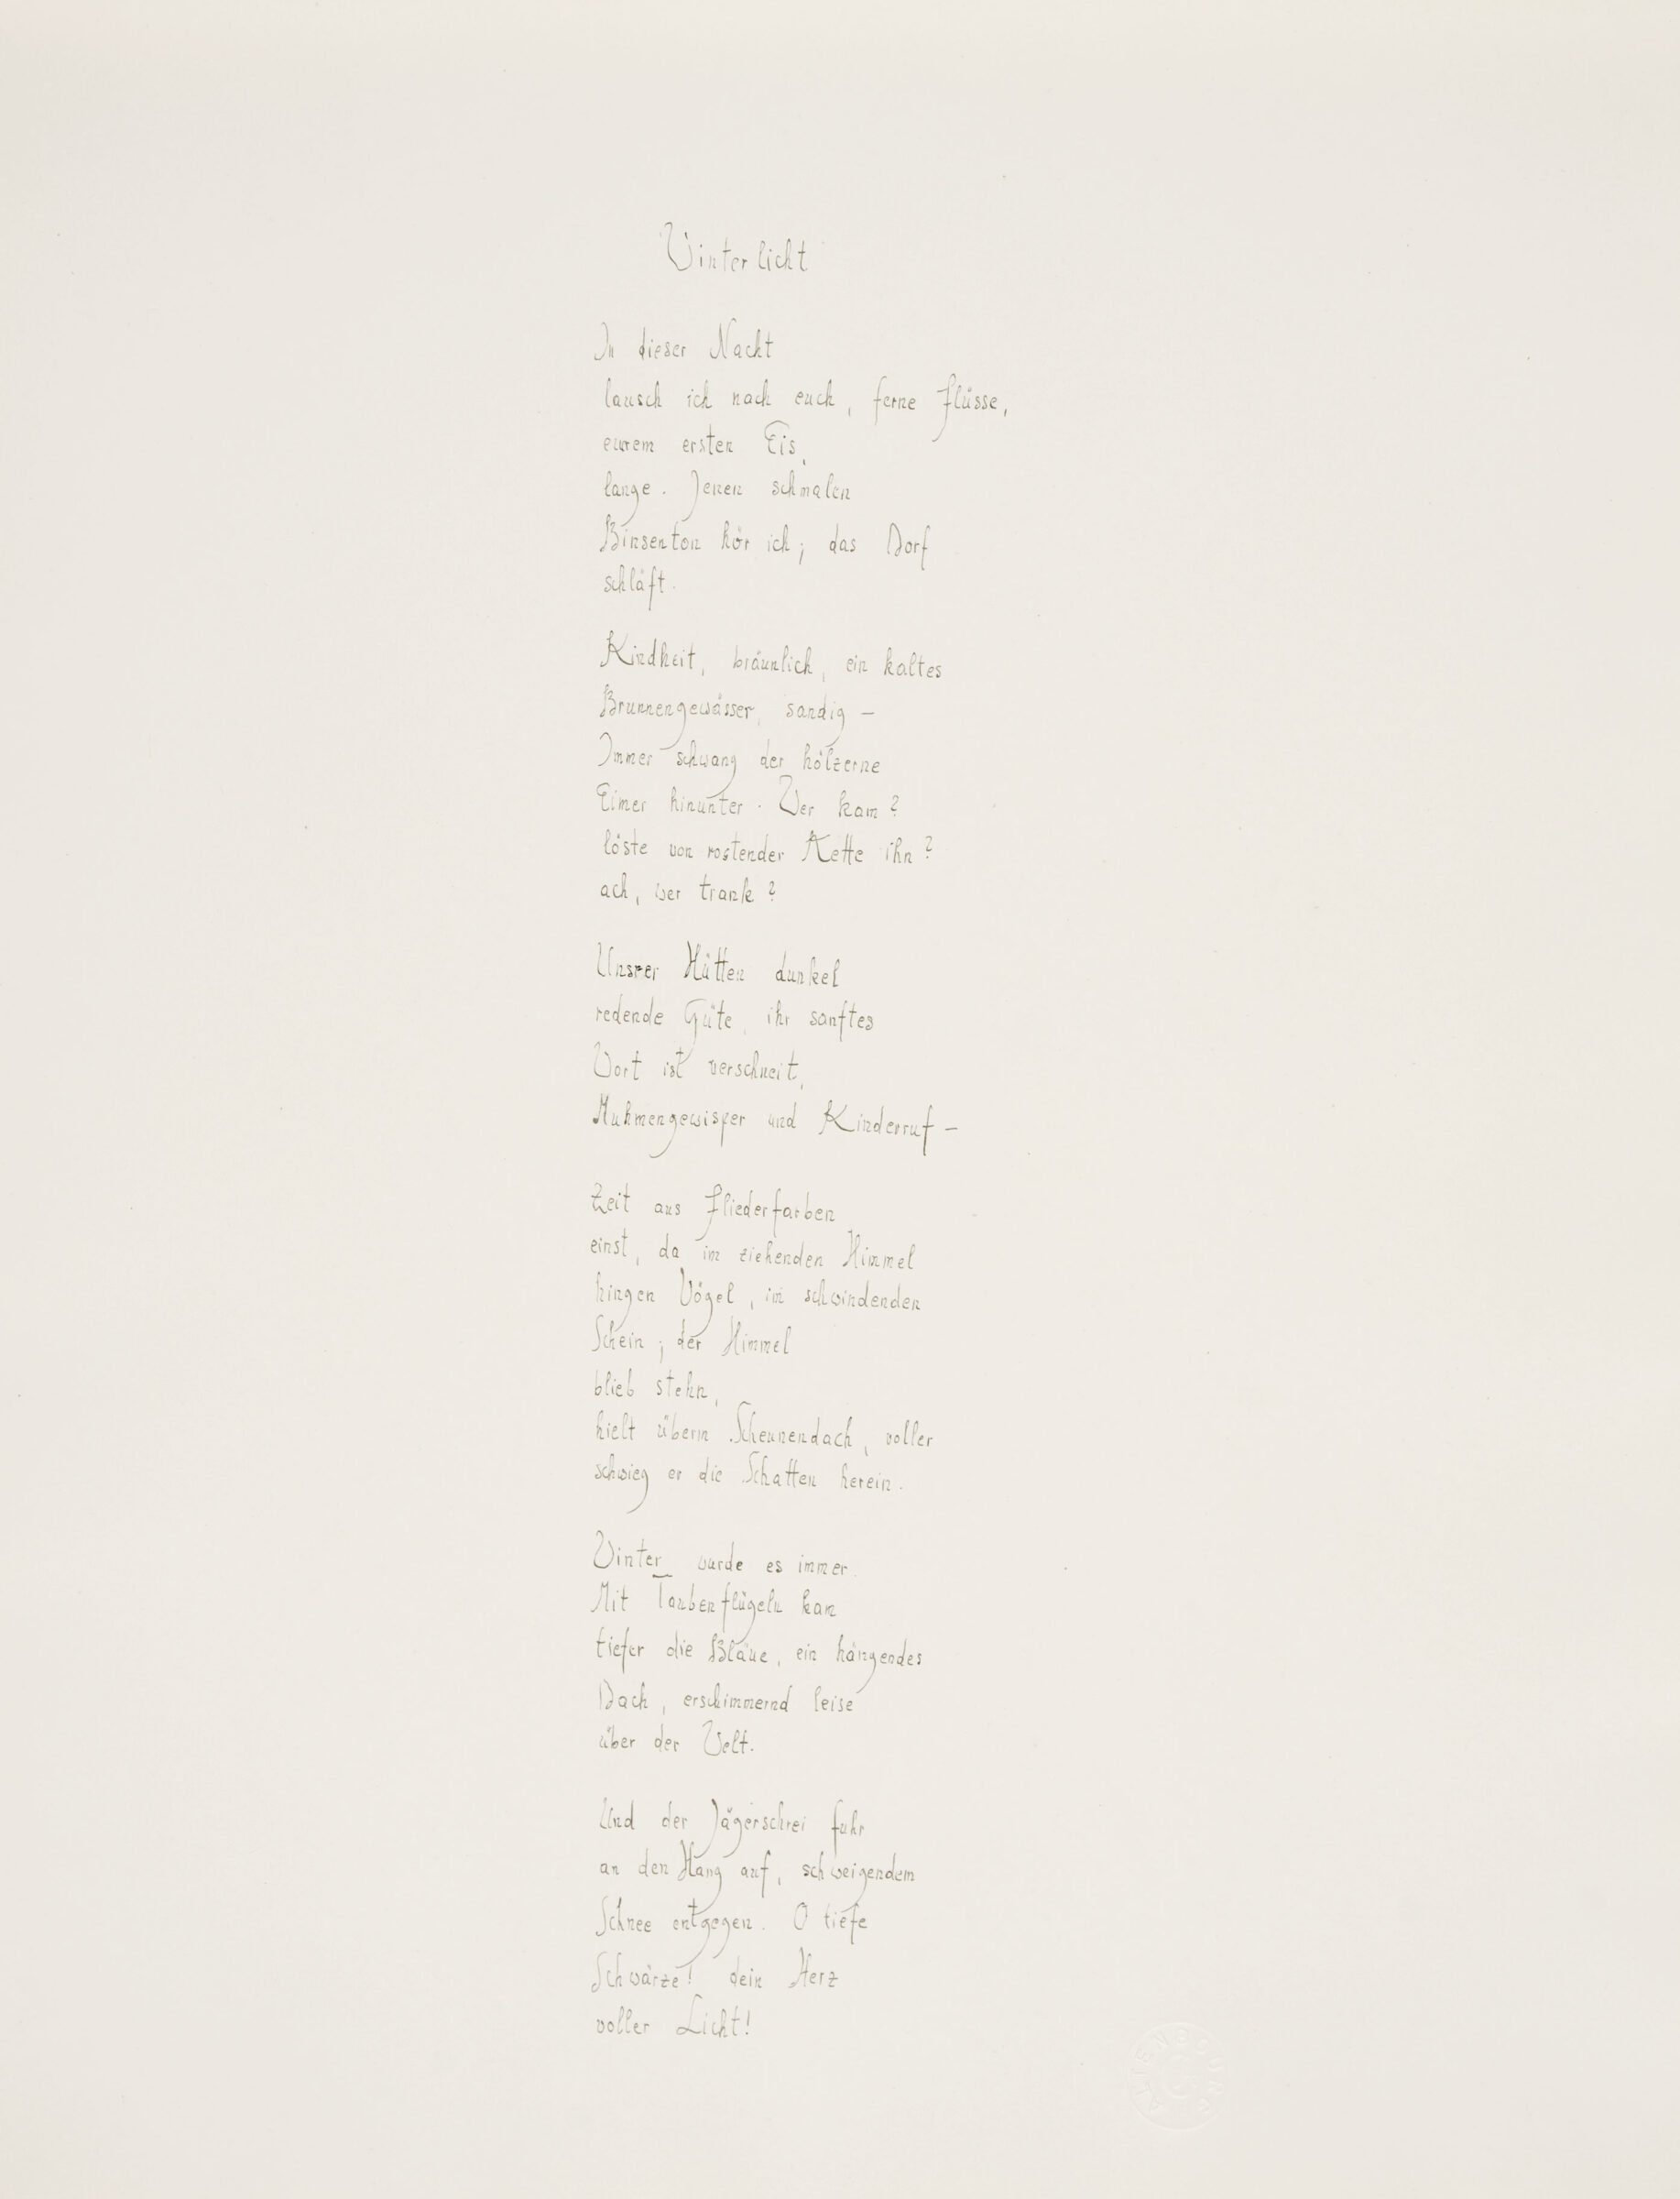 Winterlicht
In dieser Nacht
lausch ich nach euch, ferne Flüsse,
eurem ersten Eis,
lange. Jenen schmalen
Binsenton hör ich; das Dorf
schläft.
Kindheit, bräunlich, ein kaltes
Brunnengewässer, sandig –
Immer schwang der hölzerne
Eimer hinunter. Wer kam?
löste von rostender Kette ihn?
ach, wer trank?
Unsrer Hütten dunkel
redende Güte, ihr sanftes
Wort ist verschneit,
Muhmengewisper und Kinderruf –
Zeit aus Fliederfarben
einst, da im ziehenden Himmel
hingen Vögel, im schwindenden
Schein; der Himmel
blieb stehn,
hielt überm Scheunendach, voller
schwieg er die Schatten herein.
Winter wurde es immer.
Mit Taubenflügeln kam
tiefer die Bläue, ein hängendes
Dach, erschimmernd leise
über der Welt.
Und der Jägerschrei fuhr
an den Hang auf, schweigendem
Schnee entgegen. O tiefe
Schwärze! dein Herz
voller Licht!
ALTENBOURG